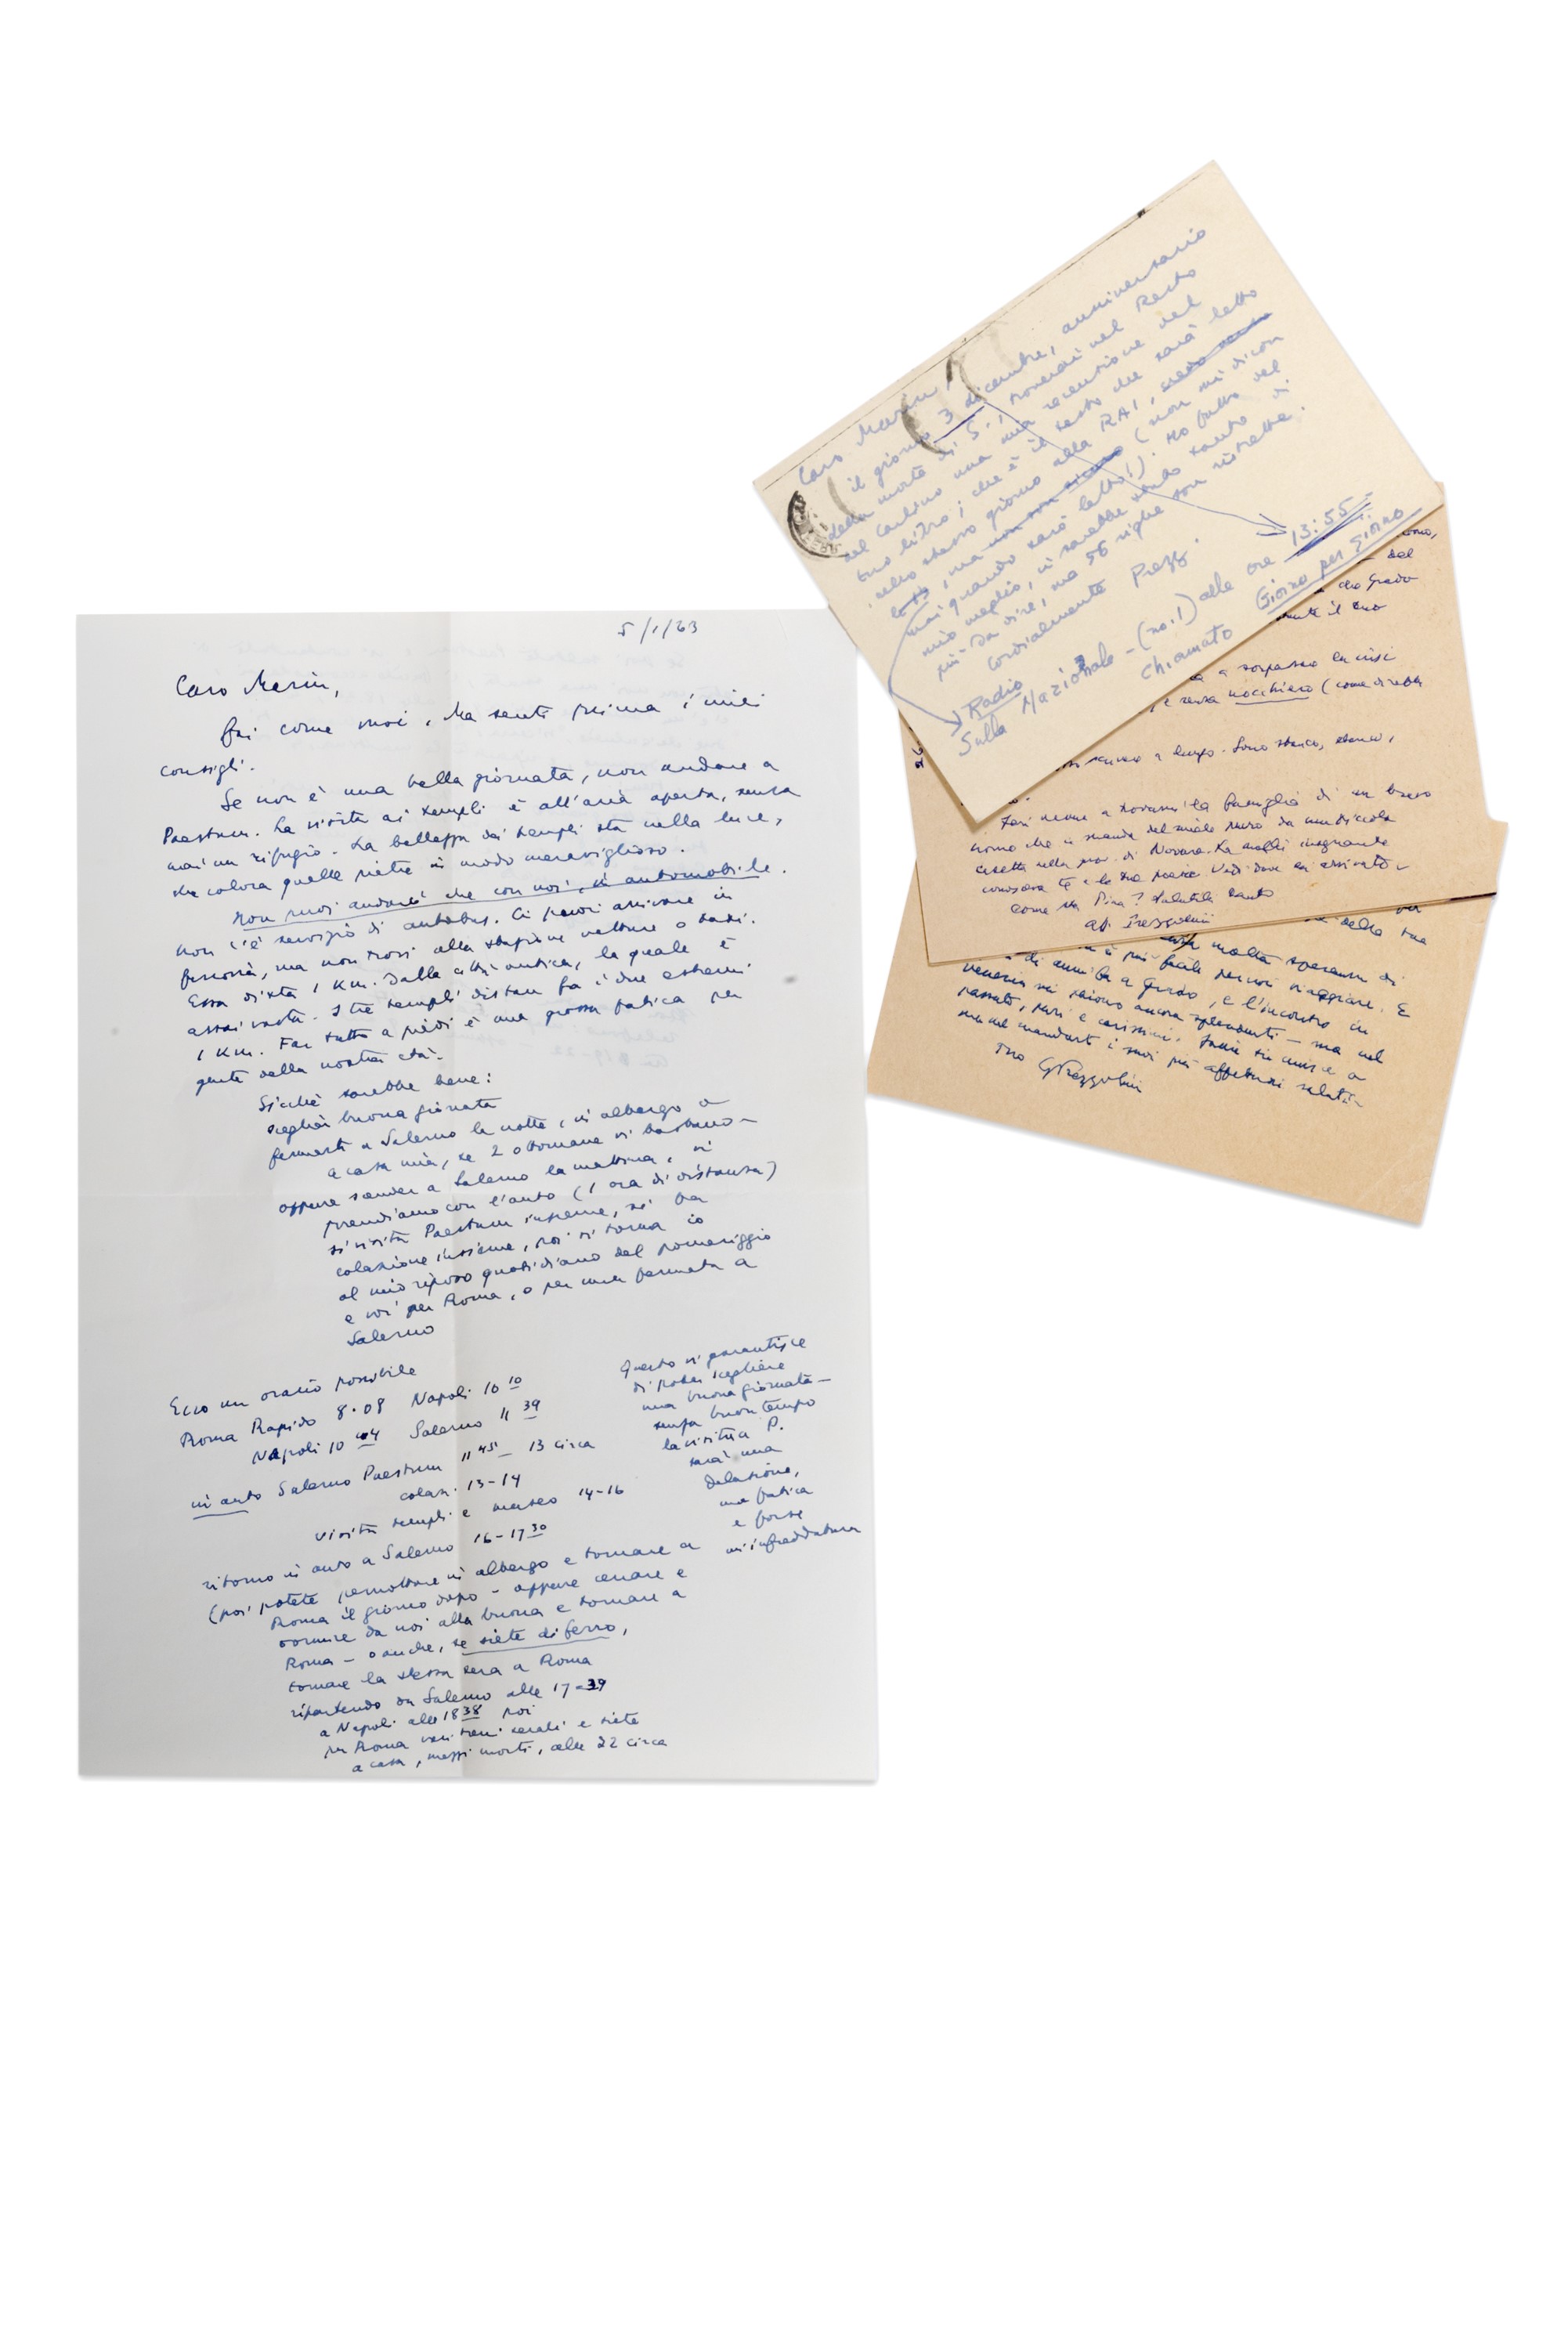 5/1/63
Caro Marin,
fai come vuoi, ma senti prima i miei
consigli.
Se non è una bella giornata, non andare a
Paestum. La visita ai templi è all'aria aperta, senza
mai un rifugio. La bellezza dei templi sta nella luce,
che colora quelle pietre in modo meraviglioso.
Non puoi andarci che con noi, in automobile.
non c'è servizio di autobus. Ci puoi arrivare in
ferrovia, ma non trovi alla stazione vetture o taxi.
Essa dista 1 Km. dalla città antica, la quale è
assai vasta. I tre templi distan fra i due estremi
1 Km. Far tutto a piedi è una grossa fatica per
gente della nostra età.
Sicché sarebbe bene:
scegliere buona giornata
fermarti a Salerno la notte, in albergo o
a casa mia, se 2 ottomane vi bastano -
oppure scender a Salerno la mattina, vi
prendiamo con l'auto (1 ora di distanza)
si visita Paestum insieme, si fa
colazione insieme, poi si torna io
al mio riposo quotidiano del pomeriggio
e voi per Roma, o per una fermata a
Salerno
Ecco un orario possibile
Roma Rapido 8.08 Napoli 10 10
Napoli 10 44 Salerno 11 39
in auto Salerno Paestum 11 45 13 circa
colaz. 13-14
visita templi e museo 14-16
ritorno in auto a Salerno 16-17 30
(poi potete pernottare in albergo e tornare a
Roma il giorno dopo - oppure cenare e
dormire da noi alla buona e tornare a
Roma - o anche, se siete di ferro,
tornare la stessa sera a Roma
ripartendo da Salerno alle 17-39
a Napoli alle 18 38 poi
per Roma vari treni serali e siete
a casa, mezzi morti, alle 22 circa
Questo vi garantisce
di poter scegliere
una buona giornata -
senza buon tempo
la visita a P.
sarà una
delusione,
una fatica
e forse
un'infreddatura
Caro Marin,
il giorno 3 dicembre, anniversario
della morte di S., troverai nel Resto
del Carlino una mia recensione del
tuo libro; che è il testo che sarà letto
nello stesso giorno alla RAI,
ma (non mi dicon
mai quando sarà letto!). Ho fatto del
mio meglio, ci sarebbe stato tanto di
più da dire, ma 56 righe son ristrette.
Cordialmente Prezz.
Radio
Sulla Nazionale - (no. 1) alle ore 13:55
chiamato Giorno per giorno
del
che Grado
il tuo
a sorpassare la crisi
e senza nocchiero (come direbbe
a lungo. Sono stanco, stanco,
Ieri venne a trovarmi la famiglia di un bravo
uomo che si
casetta nella prov. di Novara. La moglie insegnante
conosceva te e la tua poesia. Vedi dove sei arrivato -
Come sta Pina? Salutala tanto
aff. Prezzolini
della tua
molta speranza di
è più facile per voi viaggiare. E
di a Grado, e l'incontro in
Venezia mi saranno ancora splendenti - ma nel
passato, puri e carissimi. si unisce a
me nel mandarti i suoi più affettuosi saluti -
Tuo GPrezzolini